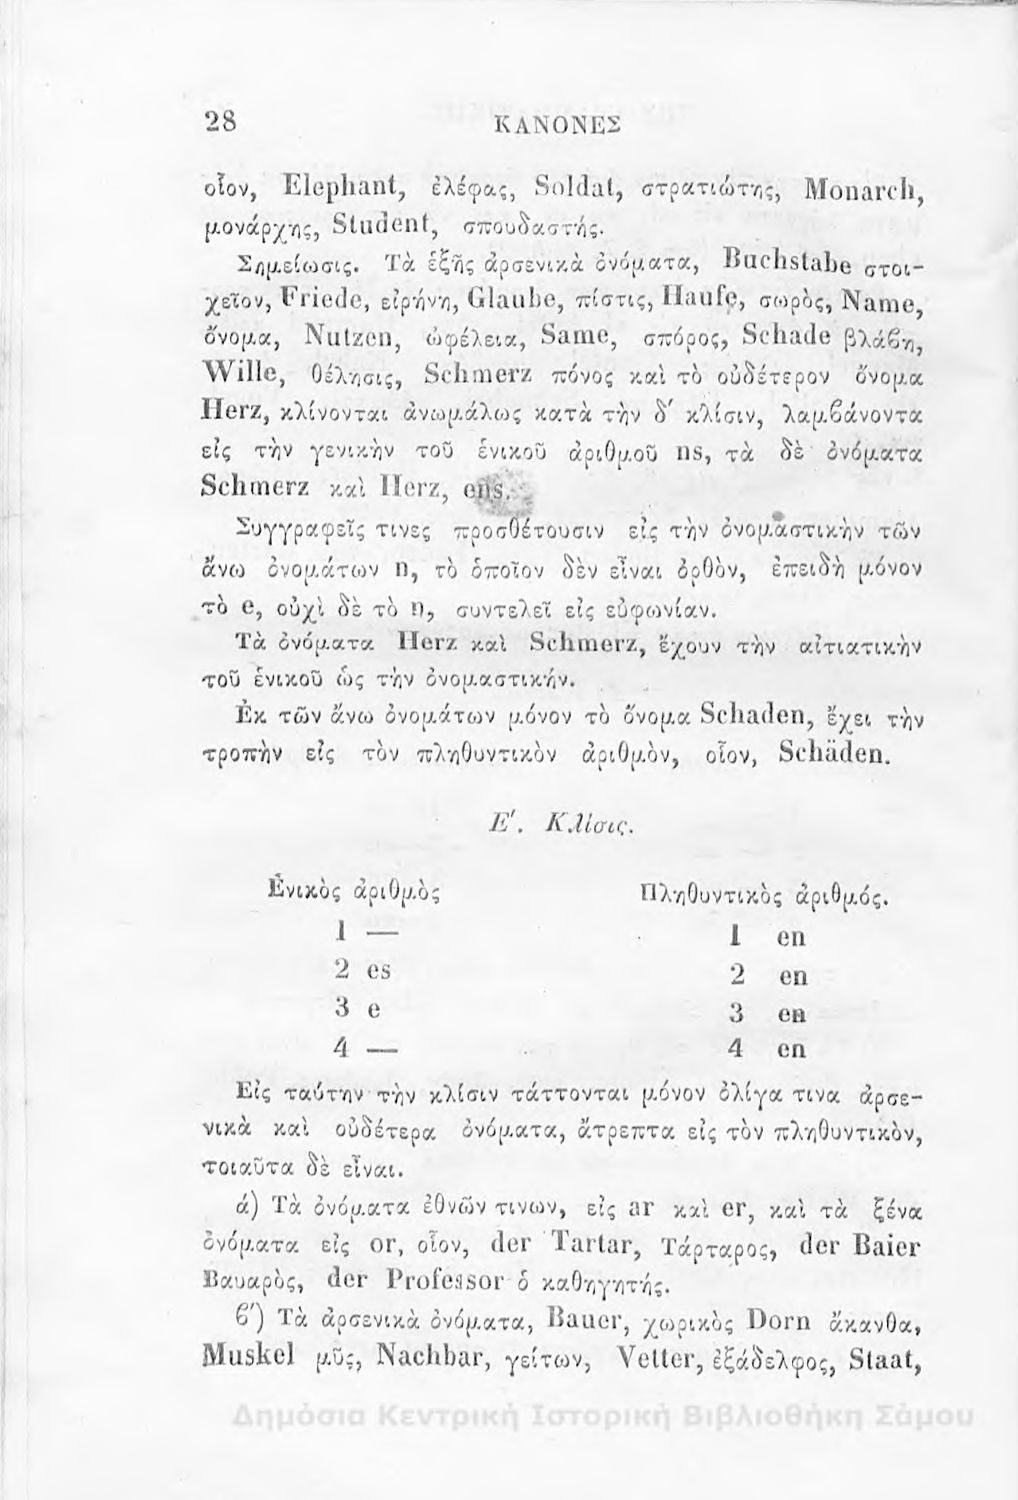 28 ΚΑΝΟΝΕΣ
οἷον, Elephant, ἐλέφας, Soldat, στρατιώτης, Monarch,
μονάρχης, Student, σπουδαστής.
Σημείωσις. Τὰ ἑξῆς ἀρσενικὰ ὀνόματα, Buchstabe στοι-
χεῖον, Friede, εἰρήνη, Glaube, πίστις, Haufe, σωρὸς, Name,
ὄνομα, Nutzen, ὠφέλεια, Same, σπόρος, Schade βλάϐη,
Wille, θέλησις, Schmerz πόνος καὶ τὸ οὐδέτερον ὄνομα
Herz, κλίνονται ἀνωμάλως κατὰ τὴν δ' κλίσιν, λαμϐάνοντα
εἰς τὴν γενικὴν τοῦ ἑνικοῦ ἀριθμοῦ ns, τὰ δὲ ὀνόματα
Schmerz καὶ Herz, ens.
Συγγραφεῖς τινες προσθέτουσιν εἰς τὴν ὀνομαστικὴν τῶν
ἄνω ὀνομάτων n, τὸ ὁποῖον δὲν εἶναι ὀρθὸν, ἐπειδὴ μόνον
τὸ e, οὐχὶ δὲ τὸ n, συντελεῖ εἰς εὐφωνίαν.
Τὰ ὀνόματα Herz καὶ Schmerz, ἔχουν τὴν αἰτιατικὴν
τοῦ ἑνικοῦ ὡς τὴν ὀνομαστικήν.
Ἐκ τῶν ἄνω ὀνομάτων μόνον τὸ ὄνομα Schaden, ἔχει τὴν
τροπὴν εἰς τὸν πληθυντικὸν ἀριθμὸν, οἷον, Schäden.
Ε'. Κλίσις.
Ἑνικὸς ἀριθμὸς Πληθυντικὸς ἀριθμός.
1 — 1 en
2 es 2 en
3 e 3 en
4 — 4 en
Εἰς ταύτην τὴν κλίσιν τάττονται μόνον ὀλίγα τινα ἀρσε-
νικὰ καὶ οὐδέτερα ὀνόματα, ἄτρεπτα εἰς τὸν πληθυντικὸν,
τοιαῦτα δὲ εἶναι.
ά) Τὰ ὀνόματα ἐθνῶν τινων, εἰς ar καὶ er, καὶ τὰ ξένα
ὀνόματα εἰς or, οἷον, der Tartar, Τάρταρος, der Baier
Βαυαρὸς, der Professor ὁ καθηγητής.
ϐ') Τὰ ἀρσενικὰ ὀνόματα, Bauer, χωρικὸς Dorn ἄκανθα,
Muskel μῦς, Nachbar, γείτων, Vetter, ἐξάδελφος, Staat,
Δημόσια Κεντρική Ιστορική Βιβλιοθήκη Σάμου